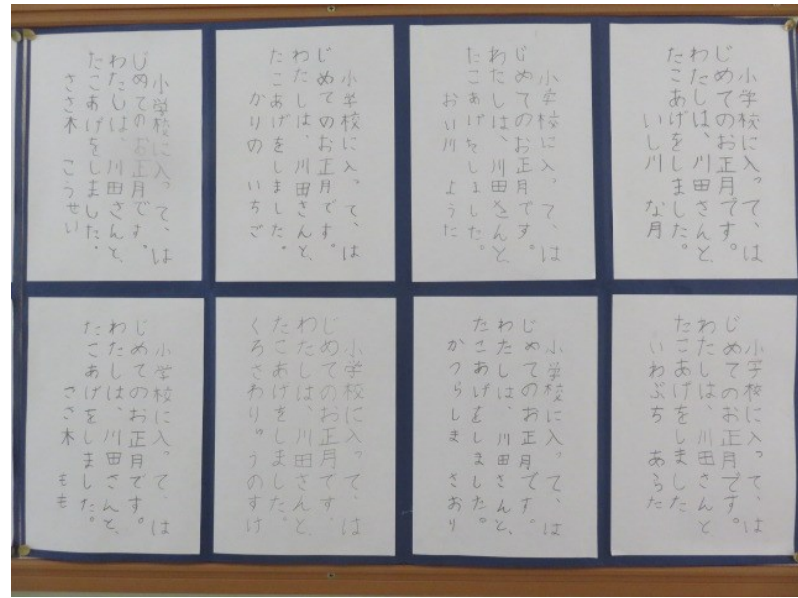 小学校に入って、は
じめてのお正月です。
わたしは、川田さんと、
たこあげをしました。
いし川 な月
小学校に入って、は
じめてのお正月です。
わたしは、川田さんと、
たこあげをしました。
おい川 ようた
小学校に入って、は
じめてのお正月です。
わたしは、川田さんと、
たこあげをしました。
かりの いちご
小学校に入って、は
じめてのお正月です。
わたしは、川田さんと、
たこあげをしました。
ささ木 こうせい
小学校に入って、は
じめてのお正月です。
わたしは、川田さんと
たこあげをしました
いわぶち あらた
小学校に入って、は
じめてのお正月です。
わたしは、川田さんと、
たこあげをしました。
かつらしま さおり
小学校に入って、は
じめてのお正月です、
わたしは、川田さんと、
たこあげをしました。
くろさわり。うのすけ
小学校に入って、は
じめてのお正月です。
わたしは、川田さんと、
たこあげをしました。
ささ木 もも